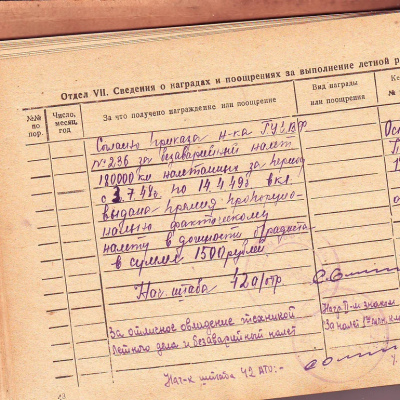 Отдел VII. Сведения о наградах и поощрениях за выполнение летной р
№№ по пор.
Число, месяц, год
За что получено награждение или поощрение
Вид награды или поощрения
№
Согласно приказа н-ка ГУГВФ
№ 236 за безаварийный налет
180000 км налетанных за период
с 3.7.48г. по 14.4.49г. вкл.
выдана премия пропорцио-
нально фактическому
налету в должности бортрадиста
в сумме 1500 рублей
Нач. штаба 42 а/отр
За отличное овладение техникой
летного дела и безаварийный налет
Нагр. П-м знаком
За налет
Нач-к штаба 42 АТО:-